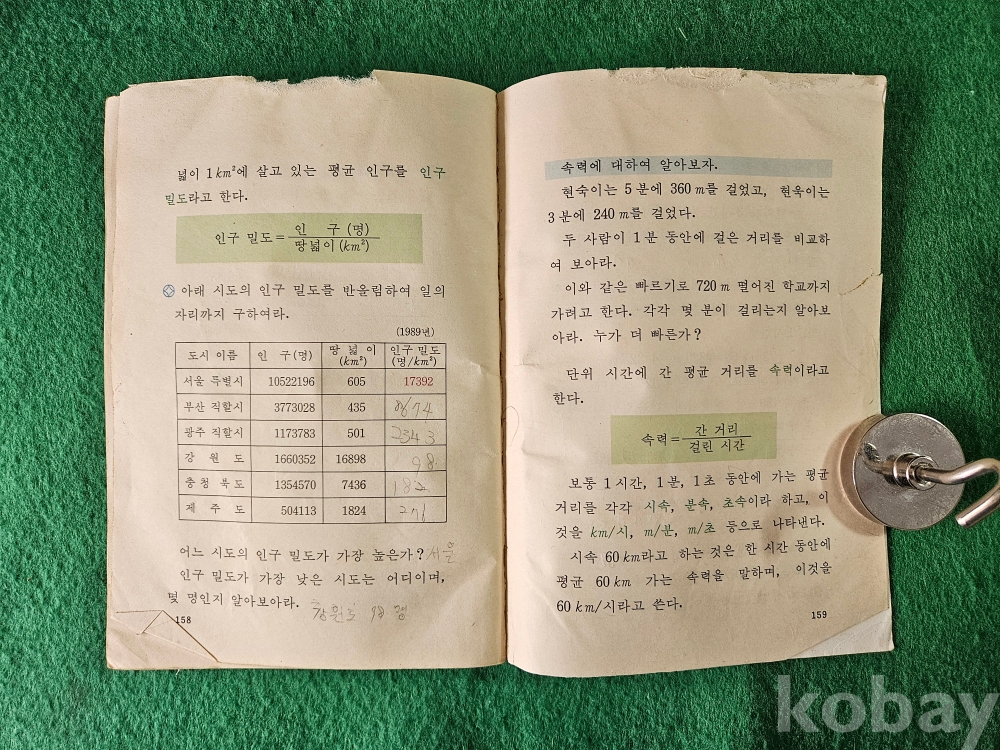 넓이 1km²에 살고 있는 평균 인구를 인구
밀도라고 한다.
인구 밀도=인 구(명)/땅넓이(km²)
아래 시도의 인구 밀도를 반올림하여 일의
자리까지 구하여라.
(1989년)
도시 이름 인 구(명) 땅 넓 이(km²) 인구 밀도(명/km²)
서울 특별시 10522196 605 17392
부산 직할시 3773028 435 8674
광주 직할시 1173783 501 2343
강 원 도 1660352 16898 98
충 청 북 도 1354570 7436 182
제 주 도 504113 1824 276
어느 시도의 인구 밀도가 가장 높은가? 서울
인구 밀도가 가장 낮은 시도는 어디이며,
몇 명인지 알아보아라. 강원도 98 명
158
속력에 대하여 알아보자.
현숙이는 5분에 360m를 걸었고, 현욱이는
3분에 240m를 걸었다.
두 사람이 1분 동안에 걸은 거리를 비교하
여 보아라.
이와 같은 빠르기로 720m 떨어진 학교까지
가려고 한다. 각각 몇 분이 걸리는지 알아보
아라. 누가 더 빠른가?
단위 시간에 간 평균 거리를 속력이라고
한다.
속력=간 거리/걸린 시간
보통 1시간, 1분, 1초 동안에 가는 평균
거리를 각각 시속, 분속, 초속이라 하고, 이
것을 km/시, m/분, m/초 등으로 나타낸다.
시속 60km라고 하는 것은 한 시간 동안에
평균 60km 가는 속력을 말하며, 이것을
60km/시라고 쓴다.
159
kobay